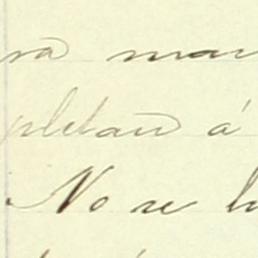 ra man
pletan á
No se h